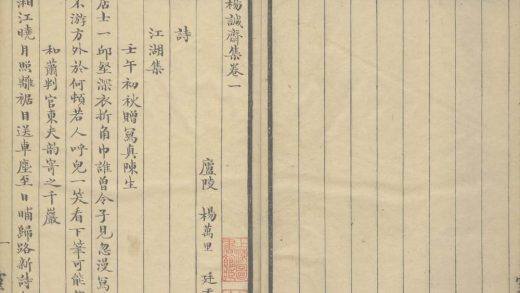 楊誠齋集卷一
廬陵 楊萬里 廷
詩
江湖集
壬午初秋贈寫真陳生
居士一邱壑深衣折角巾誰曾令子見忽漫寫
不游方外於何頓若人呼兒一笑看下筆可能
和蕭判官東夫韵寄之千巖
湘江曉月照離裾目送車塵至日晡歸路新詩
一